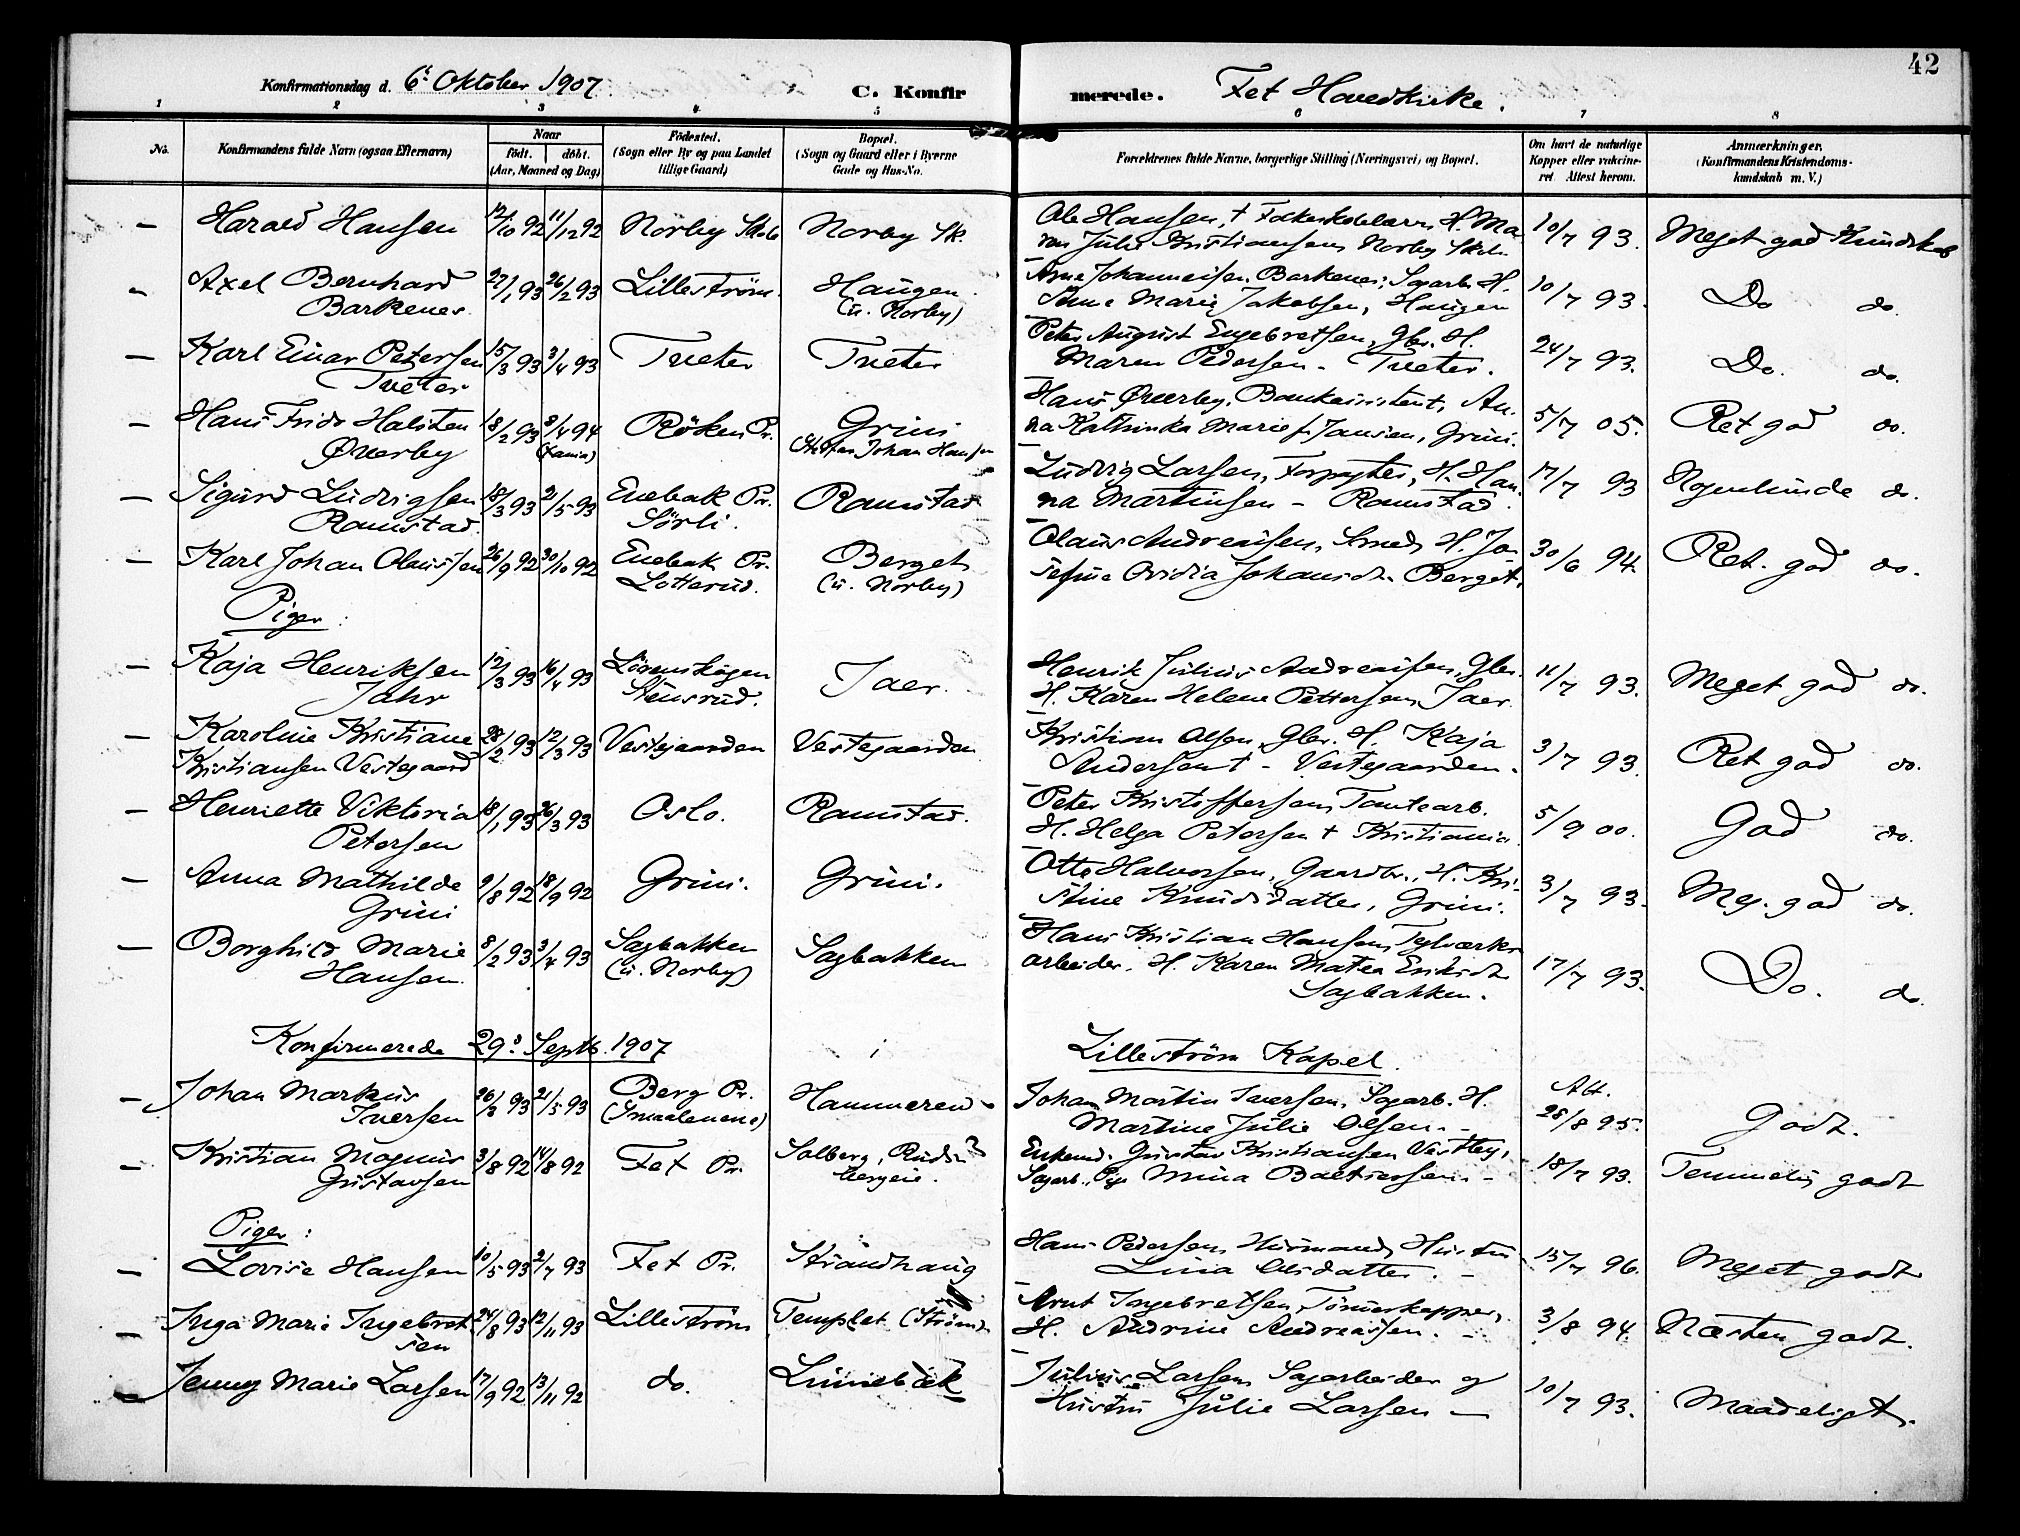 42
Konfirmationsdag d. 6te Oktober 1907.
C. Konfirmerede.
Fet Hovedkirke.
1 2 3 4 5 6 7 8
No.
Konfirmandens fulde Navn (ogsaa Efternavn)
Naar
födt. döbt.
(Aar, Maaned og Dag)
Födested.
(Sogn eller By og paa Landet
tillige Gaard)
Bopæl.
(Sogn og Gaard eller i Byerne
Gade og Hus-No.
Forældrenes fulde Navne, borgerlige Stilling (Næringsvei) og Bopæl.
Om havt de naturlige
Kopper eller vakcine-
ret. Attest herom.
Anmærkninger.
(Konfirmandens Kristendoms-
kundskab m. V.)
— Harald Hansen 12/10 92 11/12 92 Norby Skole Norby Sk. Ole Hansen, † H. Ma-
ren Julie Kristiansen, Norby Skole 10/7 93. Meget god Kundskab
Axel Bernhard 27/1 93 26/2 93 Lilleström. Haugen Arne Johannesen Barkenes, Sagarb. H.
Barkenes. (u. Norby) Anne Marie Jakobsen, Haugen 10/7 93. Do do.
— Karl Einar Petersen 15/3 93 3/4 93 Tueter Tueter Peter August Engebretsen, Gbr. H.
Tueter Maren Pedersen. Tueter. 24/7 93. Do. do.
— Hans Frido Halsten 18/2 93 8/4 94 Röken Pr. Grini Hans Øverby, Bankassistent, An-
Øverby Johan Hansen na Kathinka Marie f. Jansen, Grini. 5/7 05. Ret god do.
— Sigurd Ludvigsen 18/3 93 21/5 93 Enebak Pr. Ramstad Ludvig Larsen, Forpagter, H. Han-
Ramstad Sörli. na Martinsen – Ramstad. 17/7 93 Nogenlunde do.
— Karl Johan Olaussen 26/9 92 30/10 92 Enebak Pr. Berget Olaus Andreassen, Smed, H. Jo-
Lotterud. (u. Norby) sefine Ovidia Johansdt. Berget. 30/6 94. Ret. god do.
Piger:
— Kaja Henriksen 12/3 93 16/4 93 Lörenskogen Jaer. Henrik Julius Andreassen, Gbr.
Jahr H. Karen Helene Pettersen, Jaer. 11/7 93. Meget god do.
— Karoline Kristiane 28/2 93 12/3 93 Vestgaarden Vestgaarden Kristian Olsen, Gbr. H. Kaja
Kristiansen Vestgaard Andersen † – Vestgaarden. 3/7 93. Ret god do.
— Henriette Viktoria 18/1 93 26/3 93 Oslo. Ramstad. Peter Kristoffersen, Tomtearb.
Petersen H. Helga Petersen † Kristiania. 5/9 00. God do.
— Anna Mathilde 9/8 92 18/9 92 Grini. Grini. Otto Halvorsen, Gaardbr., H. Kri-
Grini stine Knudsdatter, Grini. 3/7 93. Meg. god do.
— Borghild Marie 8/2 93 3/4 93 Sagbakken Sagbakken Hans Kristian Hansen, Teglværks-
Hansen. (u. Norby) arbeider. H. Karen Matea Eriksdt.
Sagbakken. 17/7 93. Do. do.
Konfirmerede 29de Septb. 1907 i Lilleström Kapel.
— Johan Markus 26/3 93 21/5 93 Berg Pr. Hammeren Johan Martin Iversen, Sagarb. H. Att.
Iversen (Smaalenene) Martine Julie Olsen. – 28/8 95. Godt.
— Kristian Magnus 3/8 92 14/8 92 Fet Pr. Solberg, Enkemd. Gustav Kristiansen Vestby,
Gustavsen Sagarb., Pige Mina Baltsersen. – 18/7 93. Temmelig godt
Piger:
— Lovise Hansen 10/5 93 2/7 93 Fet Pr. Strandhaug Hans Pedersen, Husmand, Hustru
Lina Olsdatter. – 15/7 96. Meget godt
— Inga Marie Ingebret- 24/8 93 12/11 93 Lilleström Templet (Ström) Arnt Ingebretsen, Tömerkapper,
sen H. Andrine Andreassen. – 3/8 94. Næsten godt.
— Jenny Marie Larsen 17/9 92 13/11 92 do. Linnebæk Julius Larsen, Sagarbeider og
Hustru Julie Larsen – 10/7 93. Maadeligt.